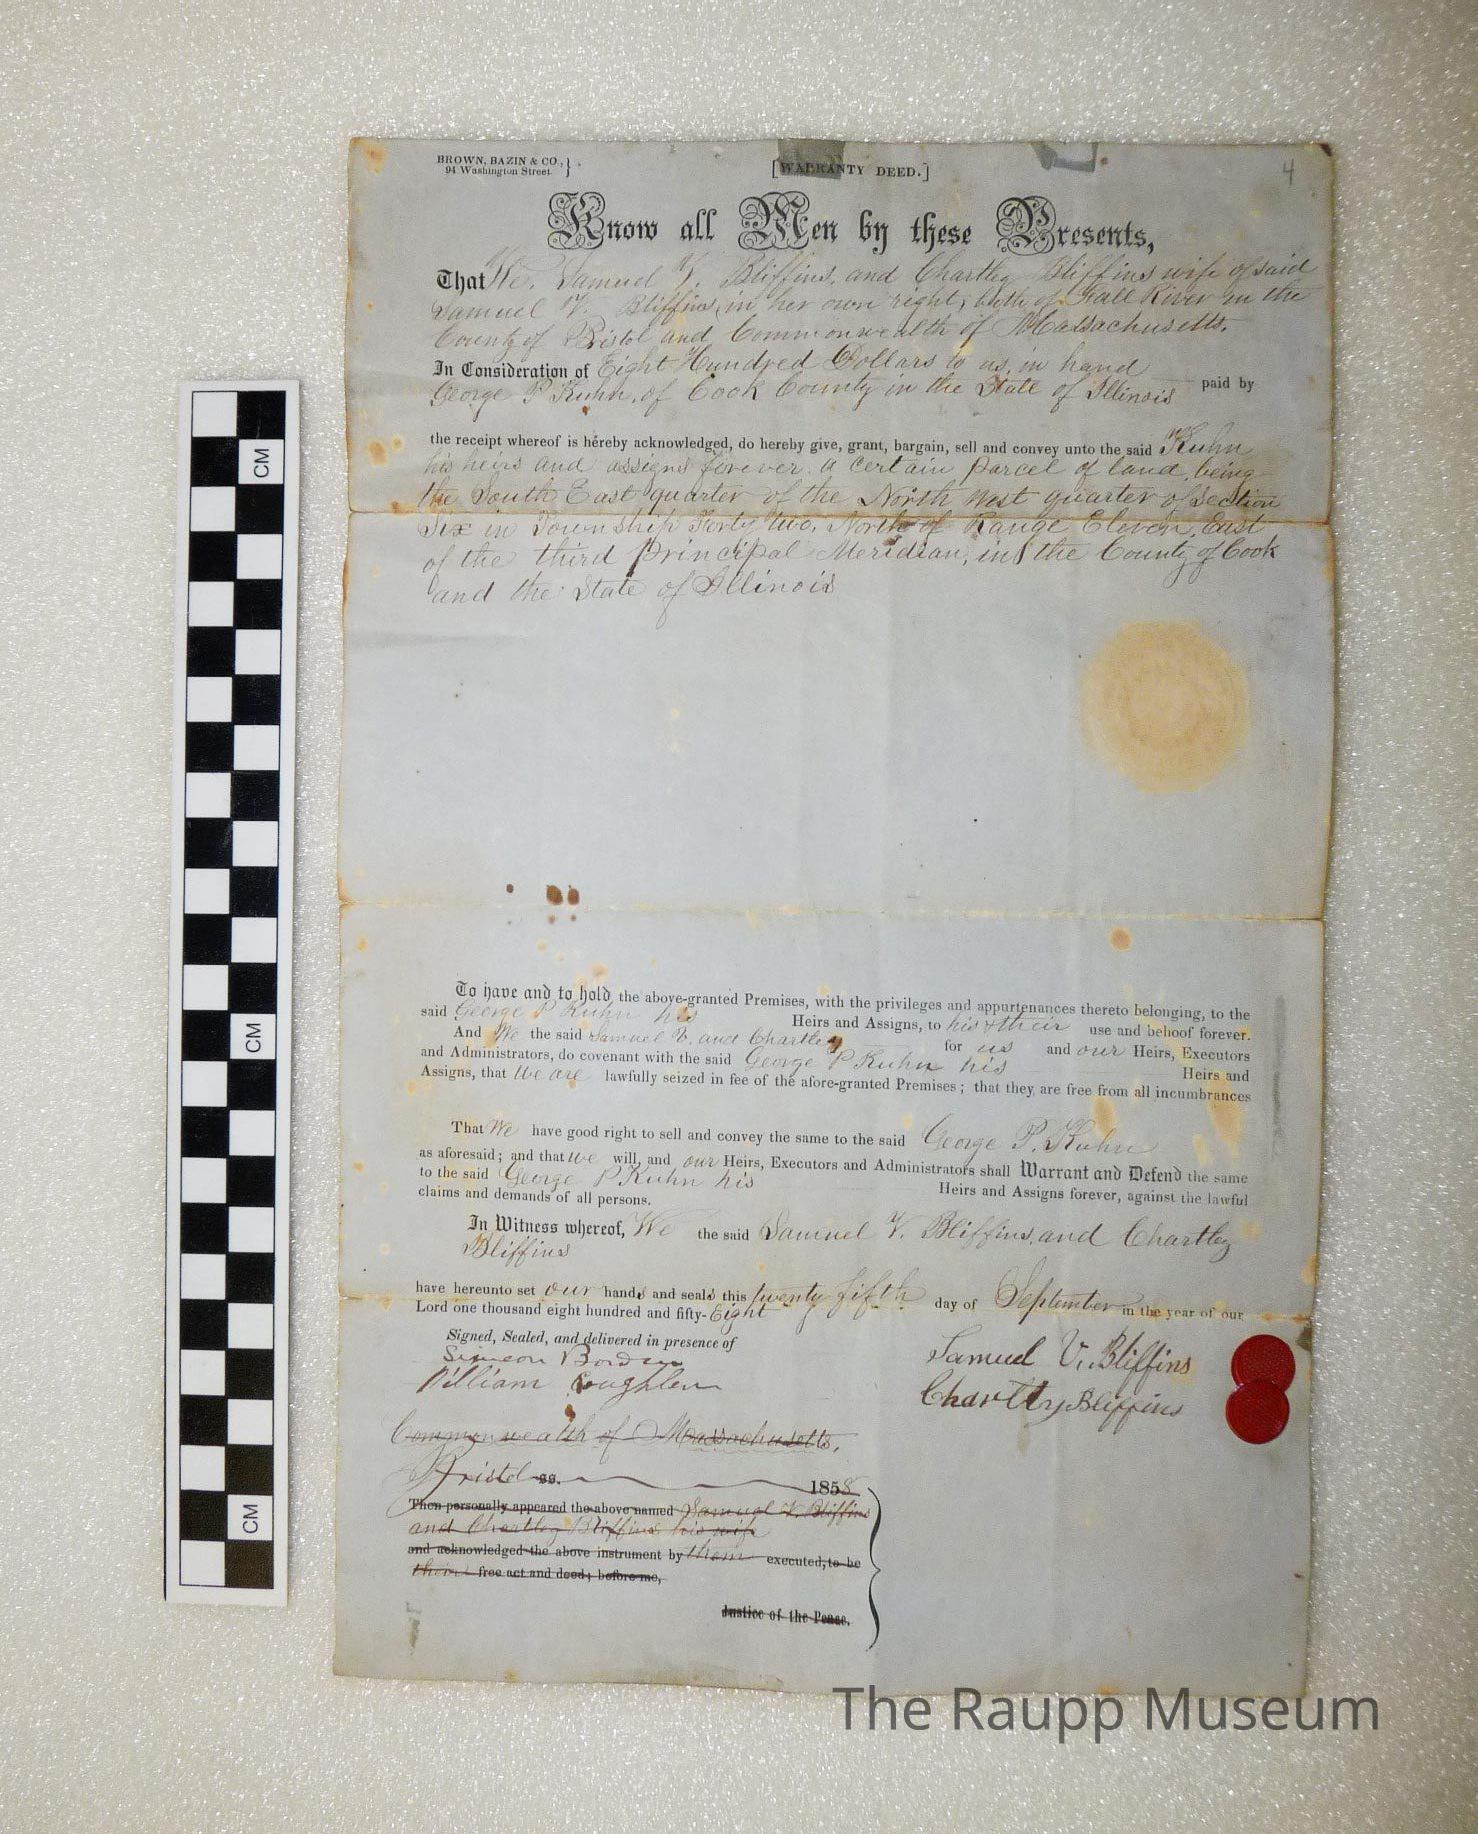 BROWN, BAZIN & CO., }
94 Washington Street.
[WARRANTY DEED.]
4
Know all Men by these Presents,
That We, Samuel V. Bliffins, and Chartley Bliffins wife of said
Samuel V. Bliffins, in her own right, both of Fall River in the
County of Bristol and Commonwealth of Massachusetts.
In Consideration of Eight Hundred Dollars to us, in hand
George P Kuhn, of Cook County in the State of Illinois paid by
the receipt whereof is hereby acknowledged, do hereby give, grant, bargain, sell and convey unto the said Kuhn
his heirs and assigns forever a certain parcel of land, being
the South East quarter of the North west quarter of Section
Six in Township Forty two, North of Range Eleven, East
of the third Principal Meridian, in the County of Cook
and the State of Illinois
To have and to hold the above-granted Premises, with the privileges and appurtenances thereto belonging, to the
said George P Kuhn his Heirs and Assigns, to his & their use and behoof forever.
And We the said Samuel V. and Chartley for us and our Heirs, Executors
and Administrators, do covenant with the said George P Kuhn his Heirs and
Assigns, that We are lawfully seized in fee of the afore-granted Premises; that they are free from all incumbrances
That We have good right to sell and convey the same to the said George P. Kuhn
as aforesaid; and that we will, and our Heirs, Executors and Administrators shall Warrant and Defend the same
to the said George P Kuhn his Heirs and Assigns forever, against the lawful
claims and demands of all persons.
In Witness whereof, We the said Samuel V. Bliffins, and Chartley
Bliffins
have hereunto set our hands and seals this twenty fifth day of September in the year of our
Lord one thousand eight hundred and fifty-Eight
Signed, Sealed, and delivered in presence of
Simeon Borden
William Coughlen
Samuel V. Bliffins
Chartley Bliffins
Commonwealth of Massachusetts,
Bristol ss. 1858
Then personally appeared the above named Samuel V. Bliffins
and Chartley Bliffins his wife
and acknowledged the above instrument by them executed, to be
their free act and deed; before me,
Justice of the Peace.
CM
CM
CM
The Raupp Museum